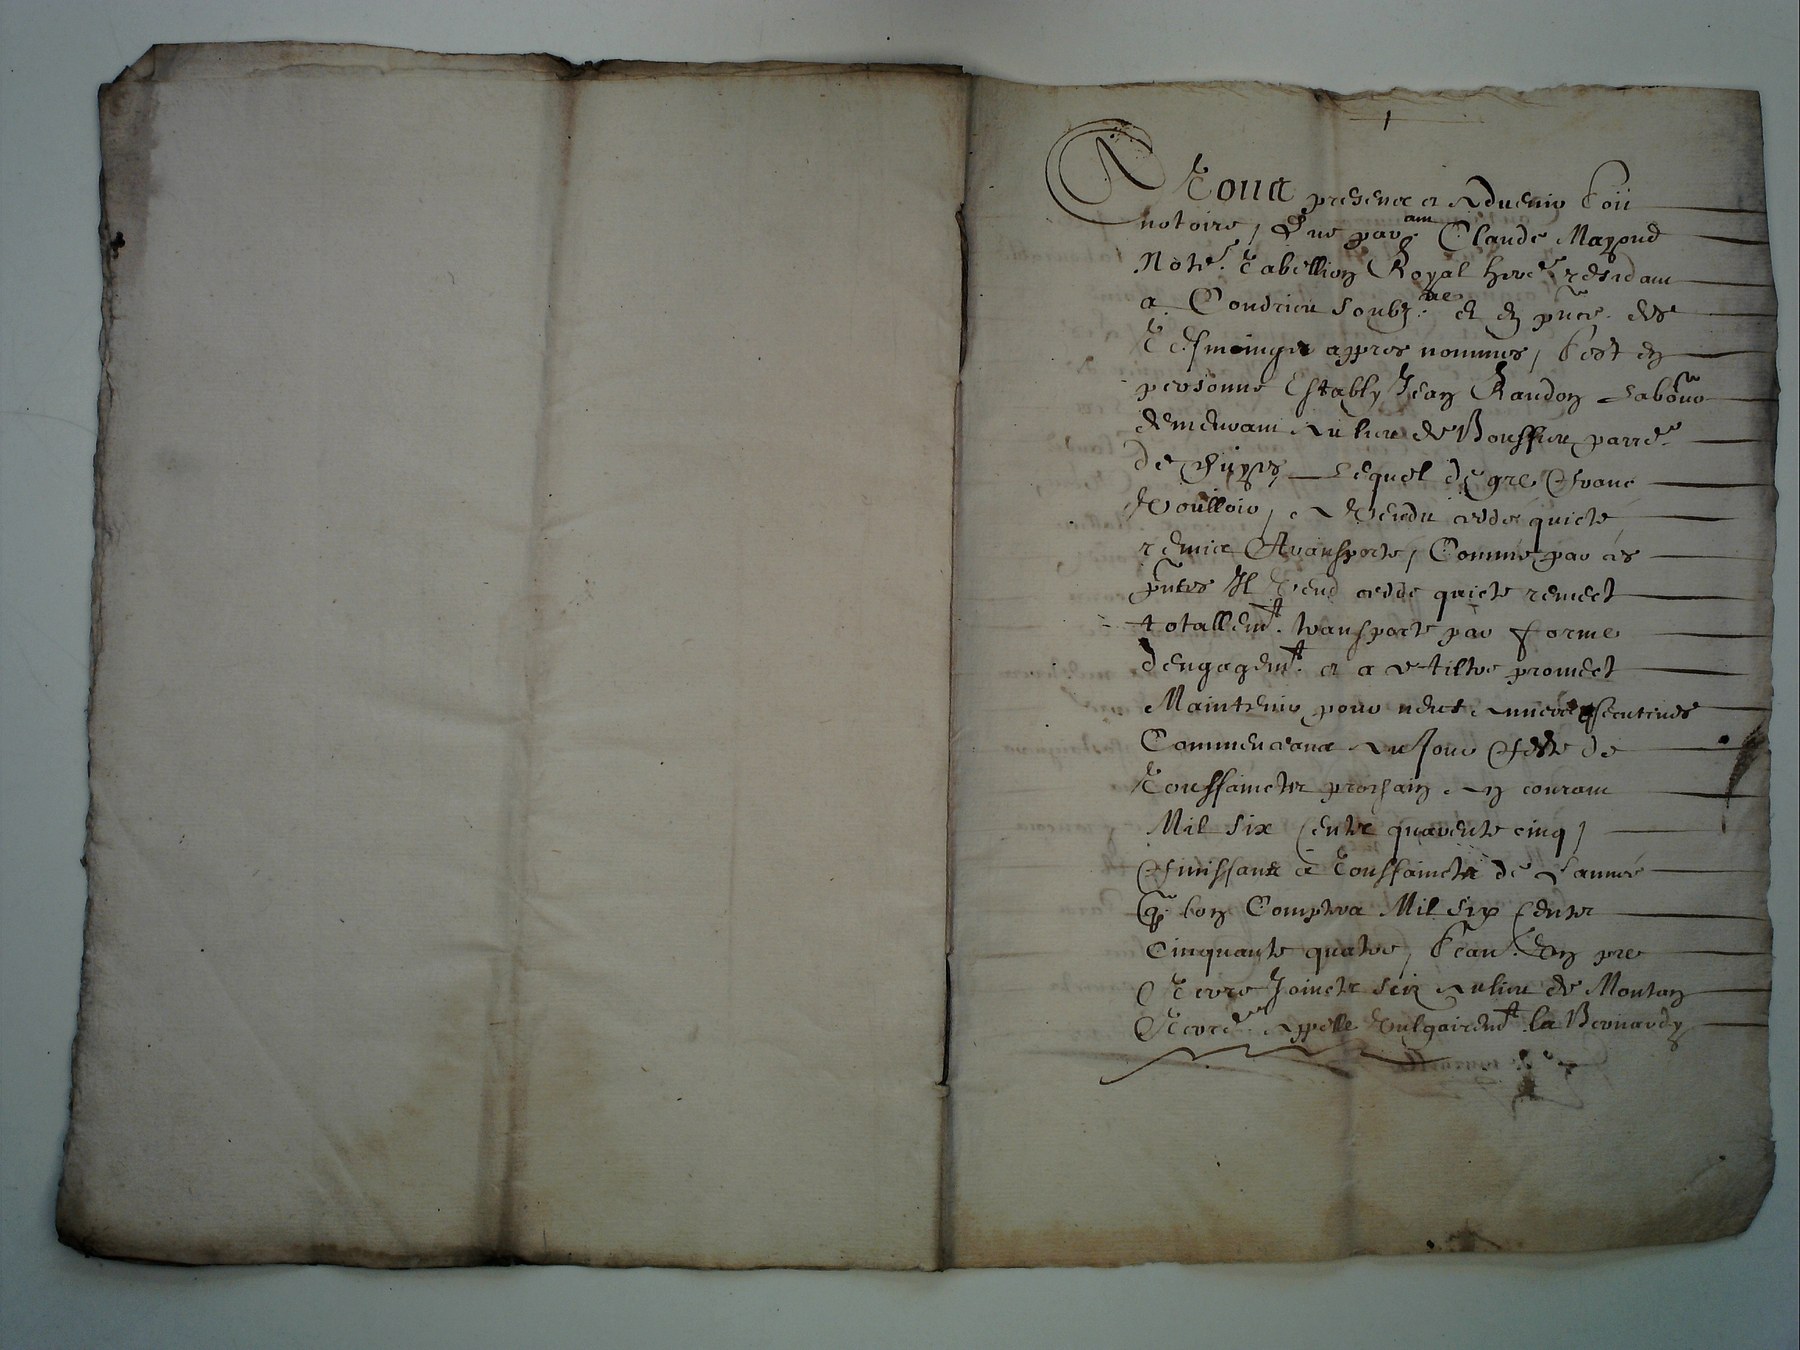 A Tous presens et Advenir soit
notoire, Que par am Claude Mazoud
Note. Tabellion Royal here. residam
a Condrieu soubz. ne et en pnce. des
Tesmoinges appres nommes, s'est en
personne Estably Jean Randon Labour
demeurant Au lieu de Bouffieu parre.
de Lequel de gre franc
Voulloir, A Vendu cedde quicte
remis et transporte, Comme par ces
pntes Il Vend cedde quicte remect
totallemt. transporte par forme
d'engagemt. et a ce tiltre promect
Maintenir pour neuf Annees
Commenceant Au Jour feste de
Toussainctz prochain An courant
Mil six centz quarente cinq,
finissant a Toussainctz de L'année
q. l'on Comptra Mil Six Centz
Cinquante quatre, un pre
Terre Joincte size Au lieu de Montan
Terre. Appelle Vulgairemt. la Bernardy